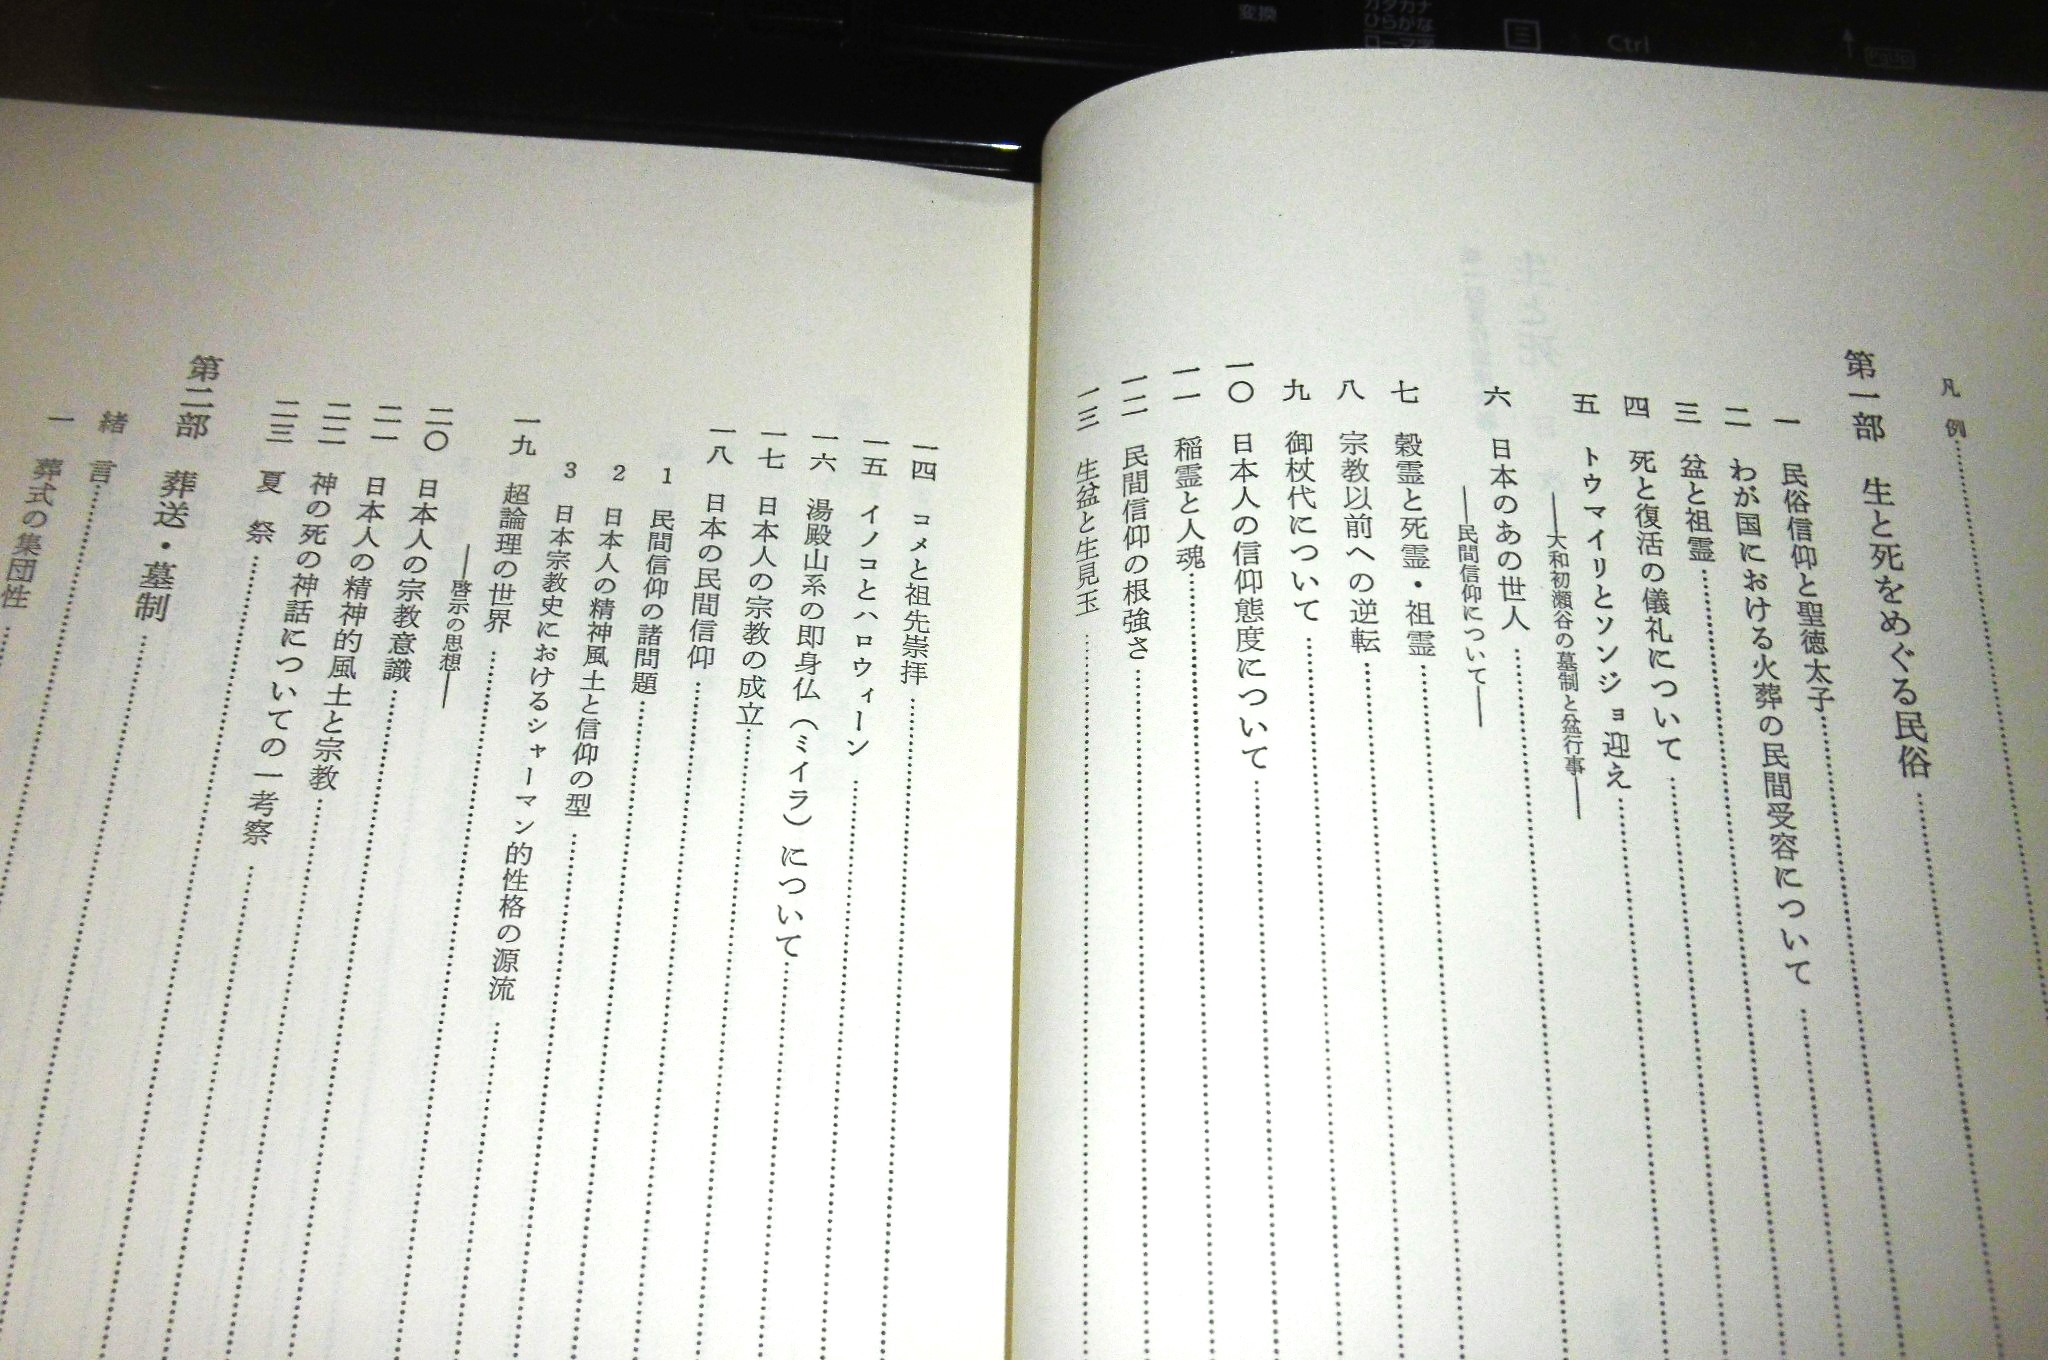 変換
カタカナ
ひらがな
Ctrl
凡例
第一部 生と死をめぐる民俗
一 民俗信仰と聖徳太子
二 わが国における火葬の民間受容について
三 盆と祖霊
四 死と復活の儀礼について
五 トウマイリとソンジョ迎え
――大和初瀬谷の墓制と盆行事――
六 日本のあの世人
――民間信仰について――
七 穀霊と死霊・祖霊
八 宗教以前への逆転
九 御杖代について
一〇 日本人の信仰態度について
一一 稲霊と人魂
一二 民間信仰の根強さ
一三 生盆と生見玉
一四 コメと祖先崇拝
一五 イノコとハロウィーン
一六 湯殿山系の即身仏(ミイラ)について
一七 日本人の宗教の成立
一八 日本の民間信仰
1 民間信仰の諸問題
2 日本人の精神風土と信仰の型
3 日本宗教史におけるシャーマン的性格の源流
一九 超論理の世界
――啓示の思想――
二〇 日本人の宗教意識
二一 日本人の精神的風土と宗教
二二 神の死の神話についての一考察
二三 夏祭
第二部 葬送・墓制
緒言
一 葬式の集団性